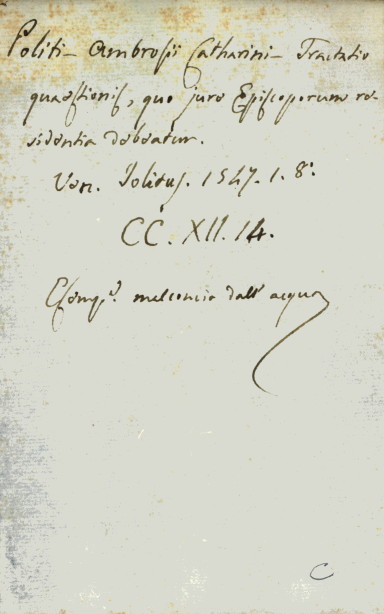 Politi - Ambrosii Catharini - Tractatio
quaestionis, quo jure Episcoporum re-
sidentia debeatur.
Ven. Jolitus. 1547. 1. 8.°
CC. XII. 14.
Esemp.e melconcio dall' acqua
C